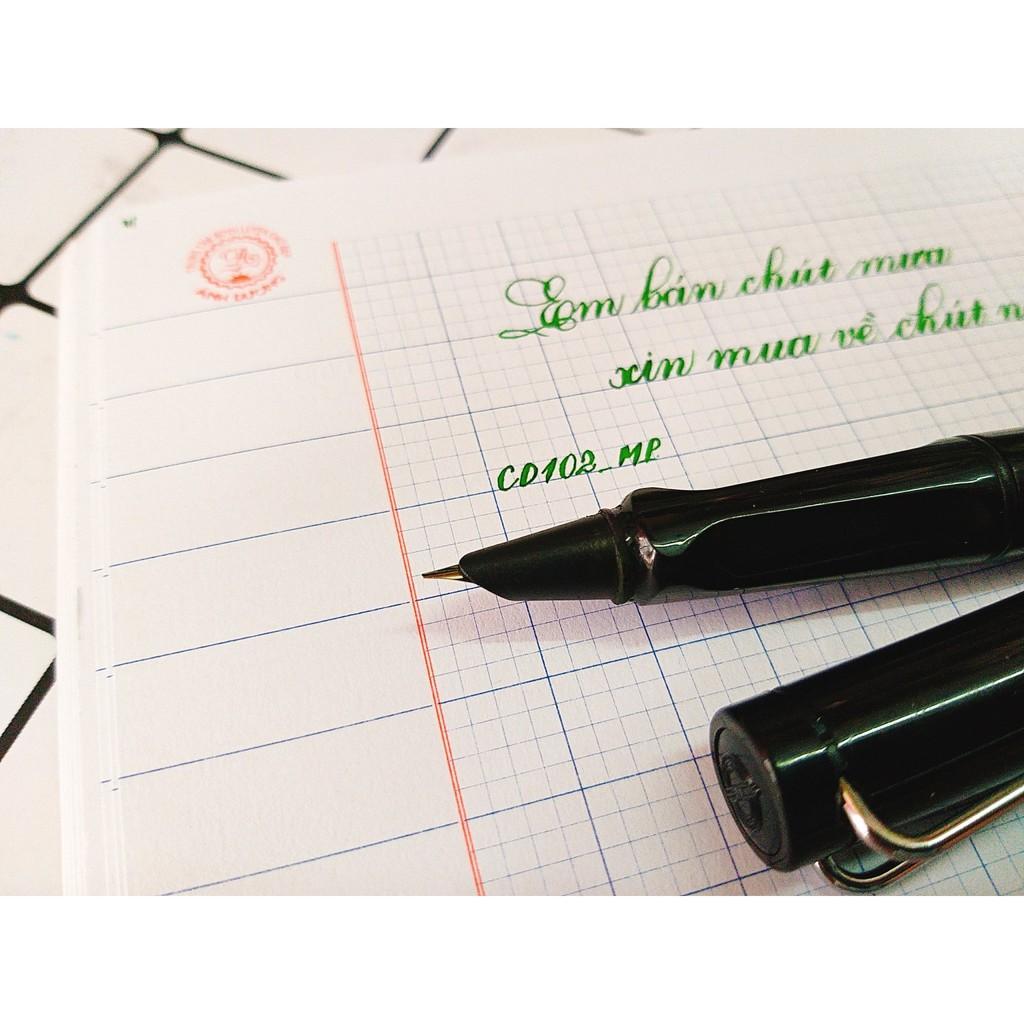 ÁNH DƯƠNG
Em bán chút mưa
xin mua về chút
CD102_MP